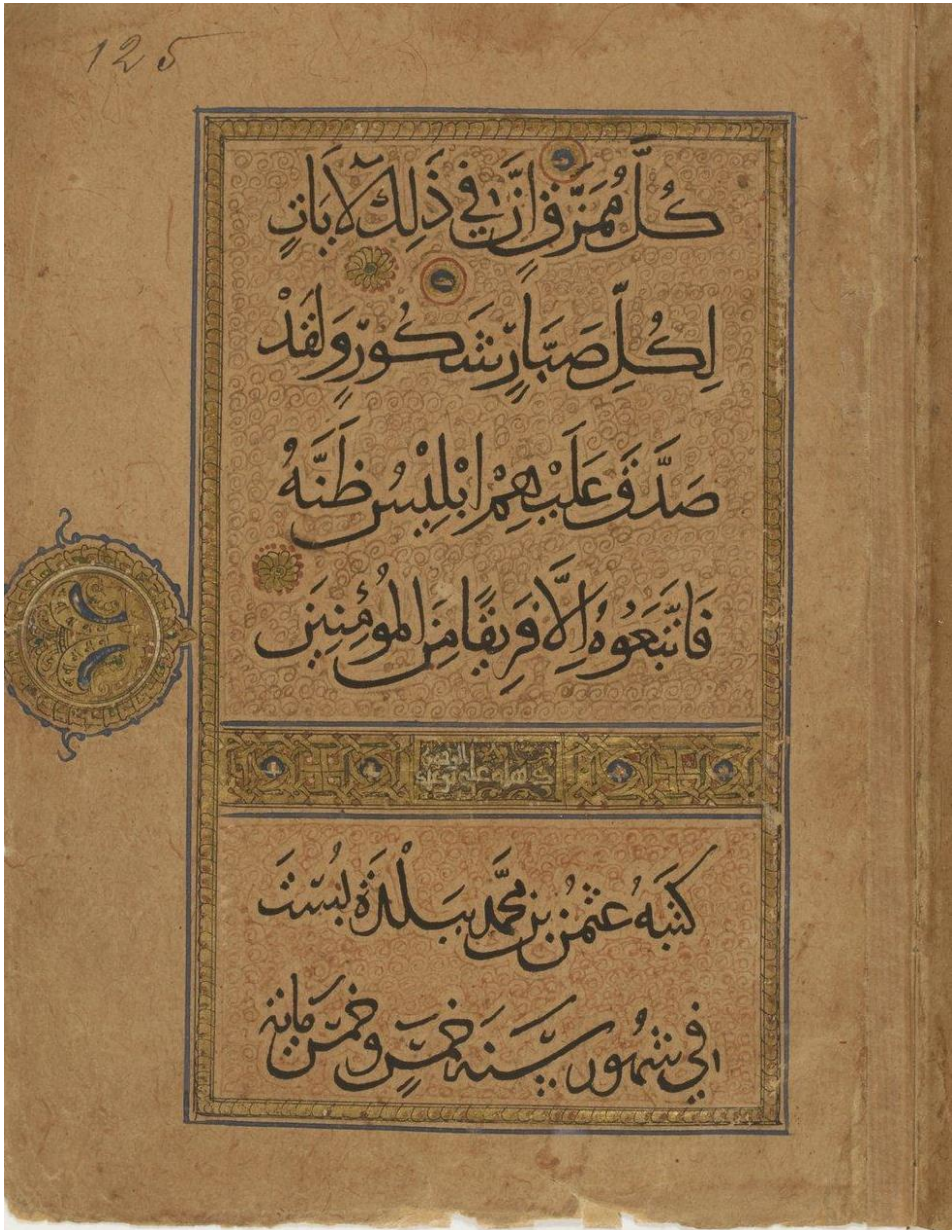 125
كُلَّ مُمَزَّقٍ اِنَّ فِي ذَلِكَ لَآيَاتٍ
لِكُلِّ صَبَّارٍ شَكُورٍ وَلَقَدْ
صَدَّقَ عَلَيْهِمْ اِبْلِيْسُ ظَنَّهُ
فَاتَّبَعُوهُ اِلَّا فَرِيقًا مِنَ الْمُؤْمِنِينَ
كتبَهُ عُثمٰنُ بن مُحَمَّد بِبَلْدَة بُسْت
في شُهُورِ سَنَة خَمْسٍ وخَمْس مَائة